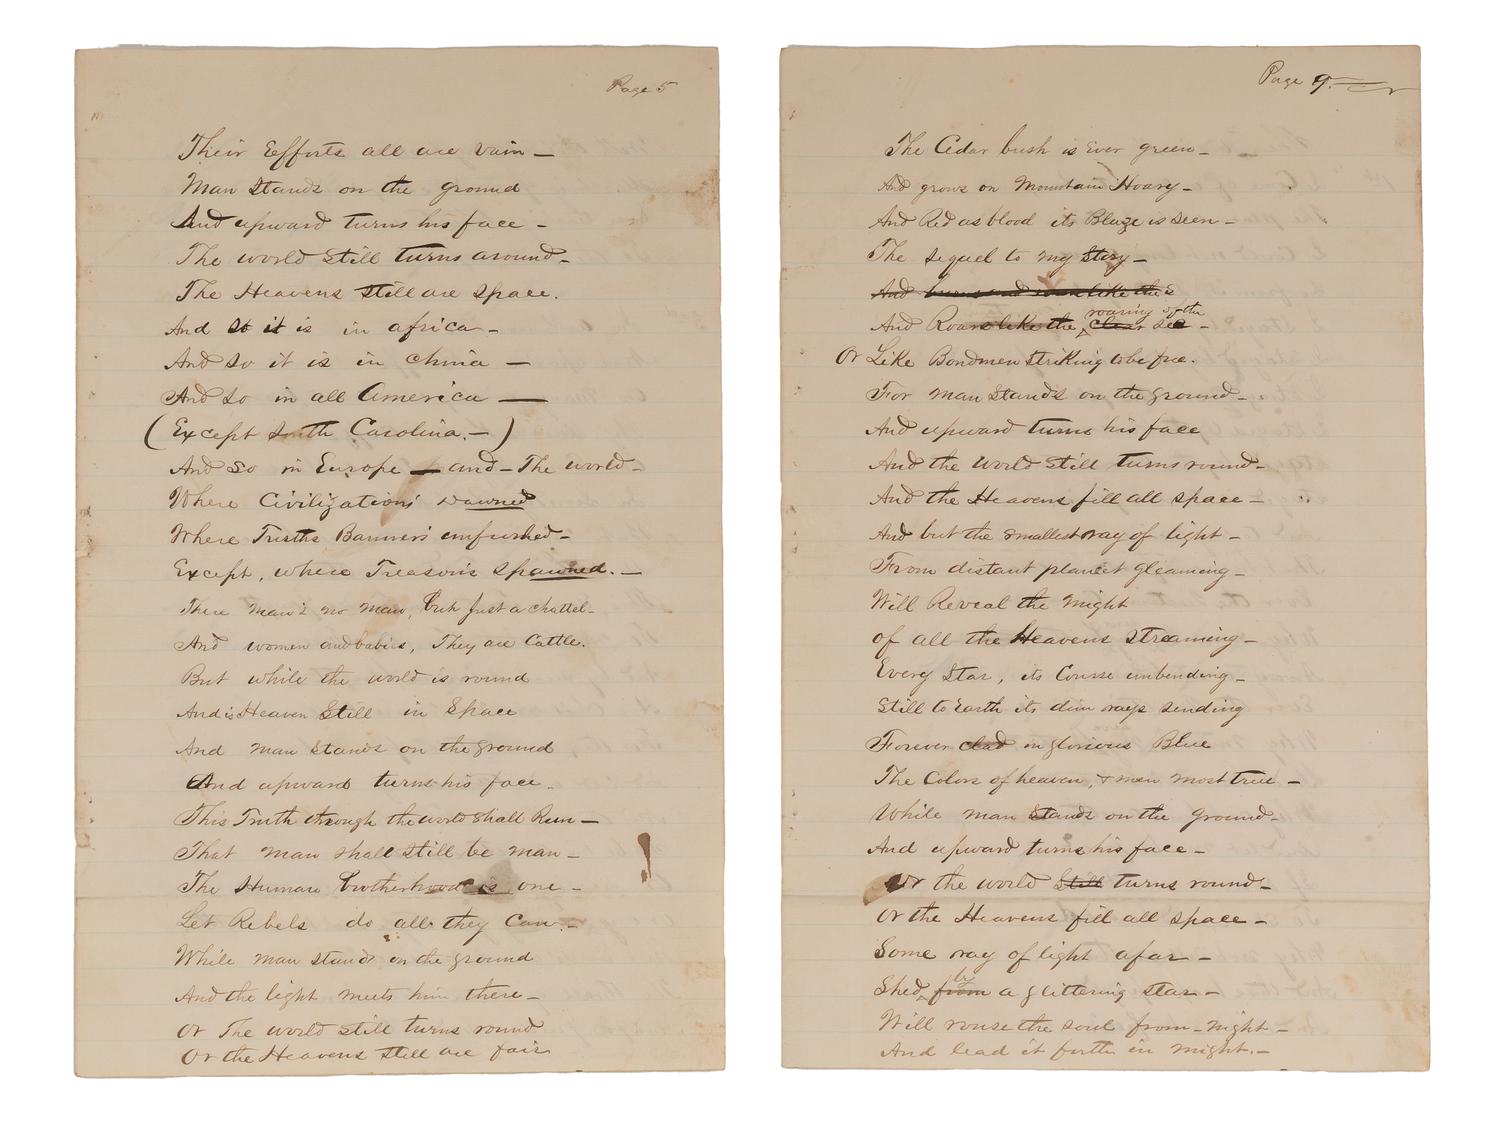 Page 5
Their Eefforts all are vain —
Man Stands on the ground
And upward turns his face -
The world Still turns around -
The Heavens Still are Space.
And so it is in africa -
And so it is in china —
And so in all America —
(Except South Carolina. - )
And So in Europe — and - The world -
Where Civilization's Dawned
Where Truths Banner's unfurled -
Except, where Treason's Spawned. -
There man's no man, but Just a chattel -
And women and babies, They are Cattle.
But while the world is round
And is Heaven Still in Space
And man Stands on the ground
And upward turns his face -
This Truth through the world Shall Run -
That man shall still be man -
The Human brotherhood is one -
Let Rebels do all they Can -
While man stands on the ground
And the light meets him there -
Or The world still turns round
Or the Heavens Still are fair
Page 9.
The Cedar bush is Ever green -
And grows on Mountain Hoary -
And Red as blood its Blaze is seen -
The Sequel to my Story -
And burns and like the
And Roars like the clear roaring of the Sea -
Or Like Bondmen Striking to be free.
For man Stands on the ground -
And upward turns his face
And the World Still turns round -
And the Heavens fill all space -
And but the smallest ray of light -
From distant planet gleaming -
Will Reveal the might
of all the Heavens streaming -
Every Star, its Course unbending -
Still to Earth its dim rays sending
Forever clad in glorious Blue
The Colors of heaven, & men most true -
While man Stands on the ground -
And upward turns his face -
Or the world Still turns round -
Or the Heavens fill all space -
Some ray of light afar -
Shed from by a glittering star -
Will rouse the soul from - night -
And lead it forth in might. -